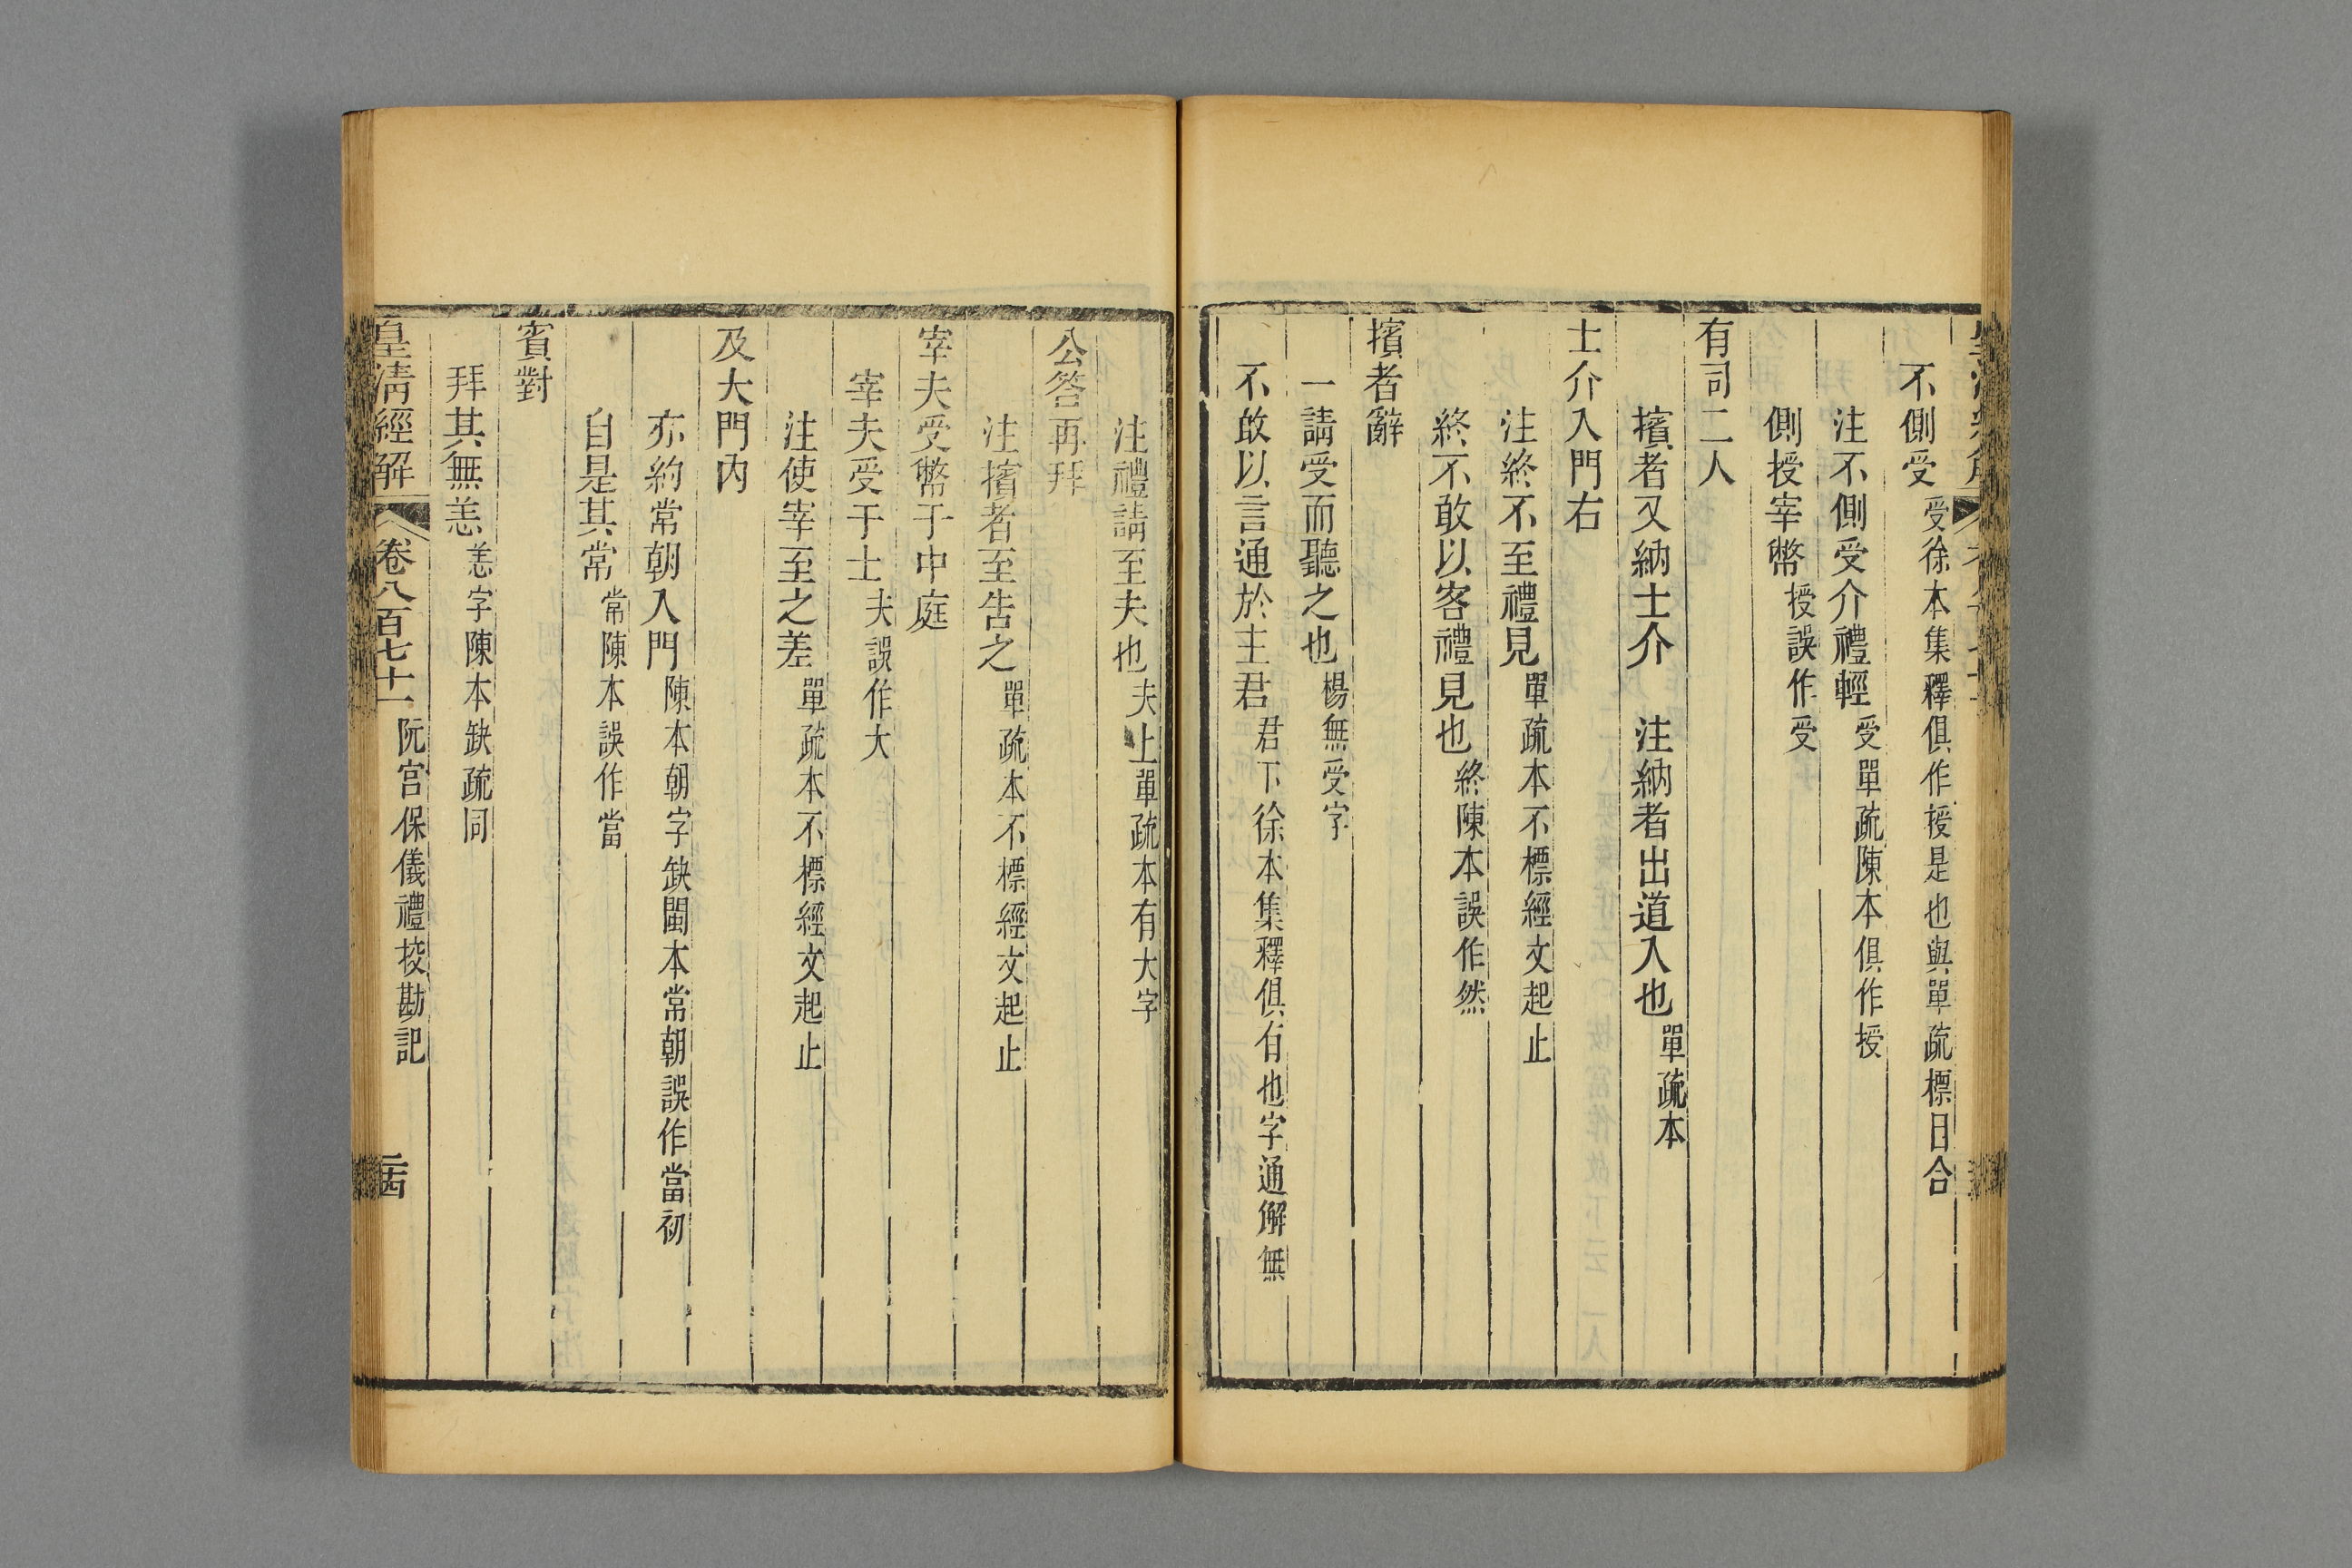 不側受受徐本集釋俱作授是也與單疏標目合
注不側受介禮輕受單疏陳本俱作授
側授宰幣授誤作受
有司二人
擯者又納士介　注納者出道入也單疏本
士介入門右
注終不至禮見單疏本不標經文起止
終不敢以客禮見也終陳本誤作然
擯者辭
一請受而聽之也楊無受字
不敢以言通於主君君下徐本集釋俱有也字通解無
注禮請至夫也夫上單疏本有大字
公答再拜
注擯者至告之單疏本不標經文起止
宰夫受幣于中庭
宰夫受于士夫誤作大
注使宰至之差單疏本不標經文起止
及大門內
亦約常朝入門陳本朝字缺閩本常朝誤作當初
自是其常常陳本誤作當
賓對
拜其無恙恙字陳本缺疏同
皇清經解 卷八百七十一 阮宮保儀禮挍勘記 二十四